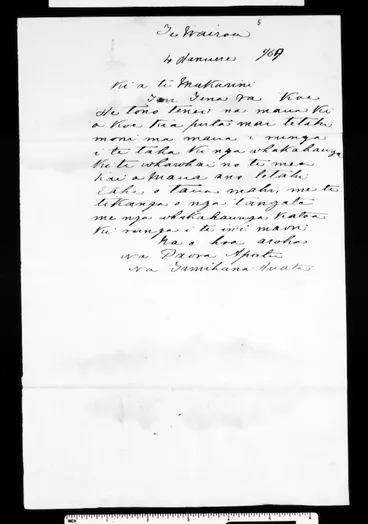 5
Te Wairoa
4 Hanuere 1869
Ki a te Makarini
Tena ra Koe
He tono tenei na maua ki
a koe kia puta mai tetahi
moni ma maua i runga
i te taha ki nga whakahaunga
ki te whawhai no te mea
kai a maua ano tetahi
taha o taua mahi, me te
tikanga o nga tangata
me nga whakahaunga katoa
ki runga i te iwi maori
Na o hoa aroha
Na Paora Apatu
Na Tamihana Huata